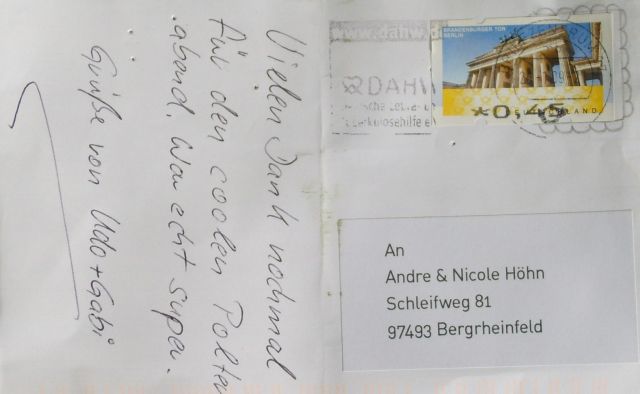 Vielen Dank nochmal
für den coolen Polter
abend. War echt super.
Grüße von Udo+Gabi
www.dahw.d
DAHW
BRANDENBURGER TOR
BERLIN
*0,45
DEUTSCHLAND
An
Andre & Nicole Höhn
Schleifweg 81
97493 Bergrheinfeld